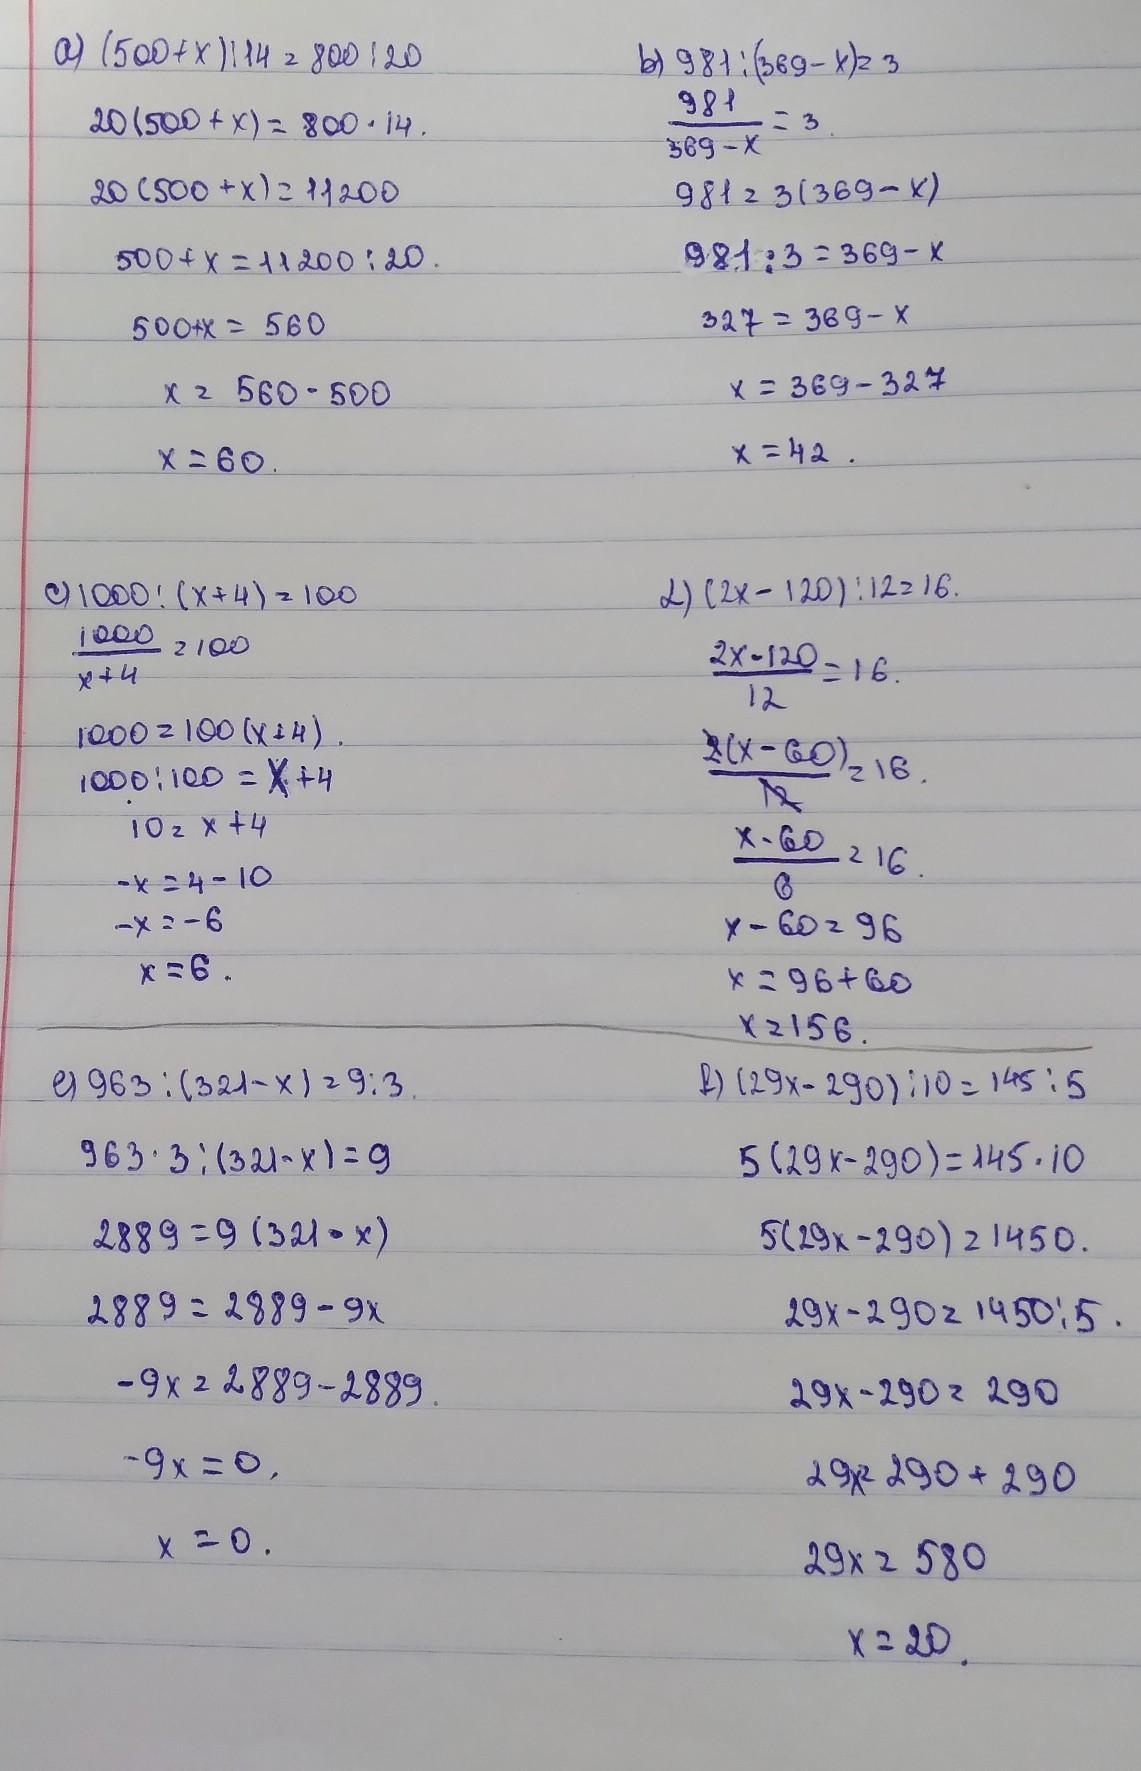 a) (500+x):14=800:20
20(500+x)=800·14.
20(500+x)=11200
500+x=11200:20.
500+x=560
x=560-500
x=60.
b) 981:(369-x)=3
981
369-x
=3.
981=3(369-x)
981:3=369-x
327=369-x
x=369-327
x=42.
c) 1000:(x+4)=100
1000
x+4
=100
1000=100(x+4).
1000:100=x+4
10=x+4
-x=4-10
-x=-6
x=6.
d) (2x-120):12=16.
2x-120
12
=16.
2(x-60)
12
=16.
x-60
6
=16.
x-60=96
x=96+60
x=156.
e) 963:(321-x)=9:3.
963·3:(321-x)=9
2889=9(321-x)
2889=2889-9x
-9x=2889-2889.
-9x=0.
x=0.
f) (29x-290):10=145:5
5(29x-290)=145·10
5(29x-290)=1450.
29x-290=1450:5.
29x-290=290
29x=290+290
29x=580
x=20.